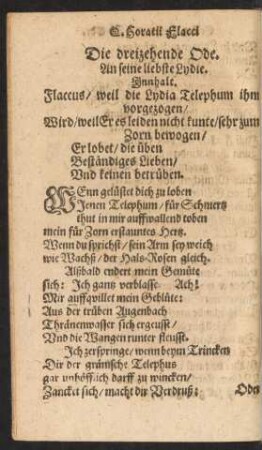 Q. Horatii Flacci
Die dreizehende Ode.
An seine liebste Lydie.
Innhalt.
Flaccus/ weil die Lydia Telephum ihm
vorgezogen/
Wird/ weil Er es leiden nicht kunte/ sehr zum
Zorn bewogen/
Er lobet/ die üben
Beständiges Lieben/
Und keinen betrüben.
WEnn gelüstet dich zu loben
Jenen Telephum/ für Schmertz
thut in mir auffwallend toben
mein für Zorn erstauntes Hertz.
Wenn du sprichst/ sein Arm sey weich
wie Wachs/ der Hals-Rosen gleich.
Alßbald endert mein Gemüte
sich: Ich gantz verblasse Ach!
Mir auffqvillet mein Geblüte:
Aus der trüben Augenbach
Thränenwasser sich ergeusst/
Und die Wangen runter fleusst.
Ich zerspringe/ wenn beym Trincken
Dir der grämsche Telephus
gar unhöfflich darff zu wincken/
Zancket sich/ macht dir Verdruß:
Oder